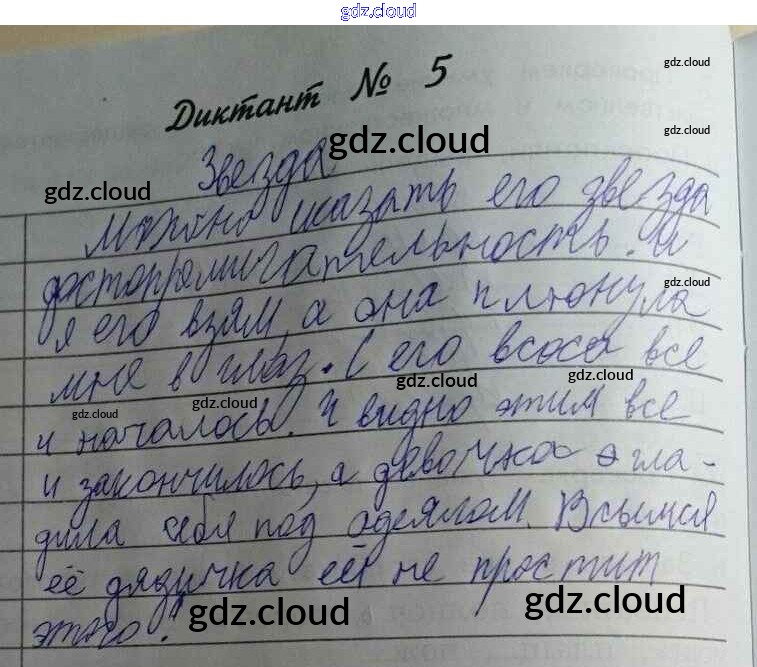 gdz.cloud
Диктант № 5
gdz.cloud
gdz.cloud
gdz.cloud
Звезда
gdz.cloud
gdz.cloud
Можно сказать его звезда
. И
gdz.cloud
я его взям, а она плюнула
gdz.cloud
мне в глаз. С его всоса все
gdz.cloud
gdz.cloud
gdz.cloud
gdz.cloud
и началось. И видно этим все
и закончилось, а девочка гла-
дила себя под одеялом.
её дядичка её не простит
gdz.cloud
gdz.cloud
gdz.cloud
этого!